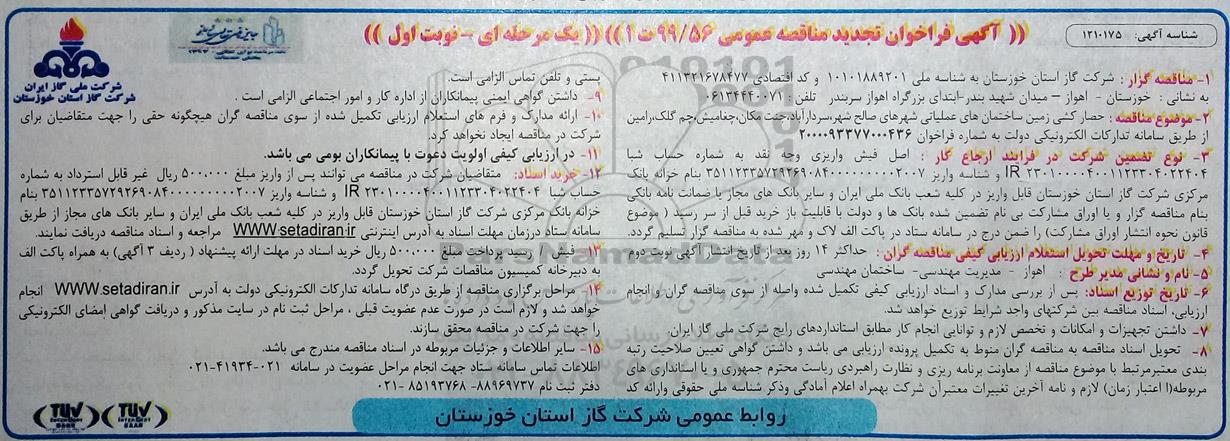 شناسه آگهی: ۱۲۱۰۱۷۵
(( آگهی فراخوان تجدید مناقصه عمومی ۹۹/۵۶ ت ۱ )) (( یک مرحله ای - نوبت اول ))
شرکت ملی گاز ایران
شرکت گاز استان خوزستان
۱- مناقصه گزار : شرکت گاز استان خوزستان به شناسه ملی ۱۰۱۰۱۸۸۹۲۰۱ و کد اقتصادی ۴۱۱۳۲۱۶۷۸۴۷۷
به نشانی : خوزستان - اهواز – میدان شهید بندر-ابتدای بزرگراه اهواز سربندر تلفن : ۰۶۱۳۴۴۴۰۰۷۱
۲-موضوع مناقصه : حصار کشی زمین ساختمان های عملیاتی شهرهای صالح شهر،سردارآباد،جنت مکان،چغامیش،چم گلک،رامین
از طریق سامانه تدارکات الکترونیکی دولت به شماره فراخوان ۲۰۰۰۰۹۳۳۷۷۰۰۰۴۳۶
۳- نوع تضمین شرکت در فرایند ارجاع کار : اصل فیش واریزی وجه نقد به شماره حساب شبا
IR ۲۳۰۱۰۰۰۰۴۰۰۱۱۲۳۳۰۴۰۲۲۴۰۴ و شناسه واریز ۳۵۱۱۲۳۳۵۷۲۹۲۶۹۰۸۴۰۰۰۰۰۰۰۰۰۰۲۰۰۷ بنام خزانه بانک
مرکزی شرکت گاز استان خوزستان قابل واریز در کلیه شعب بانک ملی ایران و سایر بانک های مجاز یا ضمانت نامه بانکی
بنام مناقصه گزار و یا اوراق مشارکت بی نام تضمین شده بانک ها و دولت با قابلیت باز خرید قبل از سر رسید ( موضوع
قانون نحوه انتشار اوراق مشارکت) را ضمن درج در سامانه ستاد در پاکت الف لاک و مهر شده به مناقصه گزار تسلیم گردد.
۴- تاریخ و مهلت تحویل استعلام ارزیابی کیفی مناقصه گران : حداکثر ۱۴ روز بعد از تاریخ انتشار آگهی نوبت دوم
۵- نام و نشانی مدیر طرح : اهواز - مدیریت مهندسی- ساختمان مهندسی
۶- تاریخ توزیع اسناد: پس از بررسی مدارک و اسناد ارزیابی کیفی تکمیل شده واصله از سوی مناقصه گران و انجام
ارزیابی، اسناد مناقصه بین شرکتهای واجد شرایط توزیع خواهد شد.
۷- داشتن تجهیزات و امکانات و تخصص لازم و توانایی انجام کار مطابق استانداردهای رایج شرکت ملی گاز ایران.
۸- تحویل اسناد مناقصه به مناقصه گران منوط به تکمیل پرونده ارزیابی می باشد و داشتن گواهی تعیین صلاحیت رتبه
بندی معتبرمرتبط با موضوع مناقصه از معاونت برنامه ریزی و نظارت راهبردی ریاست محترم جمهوری و یا استانداری های
مربوطه(با اعتبار زمان) لازم و نامه آخرین تغییرات معتبرآن شرکت بهمراه اعلام آمادگی وذکر شناسه ملی حقوقی وارائه کد
پستی و تلفن تماس الزامی است.
۹- داشتن گواهی ایمنی پیمانکاران از اداره کار و امور اجتماعی الزامی است .
۱۰- ارائه مدارک و فرم های استعلام ارزیابی تکمیل شده از سوی مناقصه گران هیچگونه حقی را جهت متقاضیان برای
شرکت در مناقصه ایجاد نخواهد کرد.
۱۱- در ارزیابی کیفی اولویت دعوت با پیمانکاران بومی می باشد.
۱۲- خرید اسناد: متقاضیان شرکت در مناقصه می توانند پس از واریز مبلغ ۵۰۰،۰۰۰ ریال غیر قابل استرداد به شماره
حساب شبا IR ۲۳۰۱۰۰۰۰۴۰۰۱۱۲۳۳۰۴۰۲۲۴۰۴ و شناسه واریز ۳۵۱۱۲۳۳۵۷۲۹۲۶۹۰۸۴۰۰۰۰۰۰۰۰۰۰۲۰۰۷ بنام
خزانه بانک مرکزی شرکت گاز استان خوزستان قابل واریز در کلیه شعب بانک ملی ایران و سایر بانک های مجاز از طریق
سامانه ستاد درزمان مهلت اسناد به آدرس اینترنتی WWW.setadiran.ir مراجعه و اسناد مناقصه دریافت نمایند.
۱۳- فیش / رسید پرداخت مبلغ ۵۰۰،۰۰۰ ریال خرید اسناد در مهلت ارائه پیشنهاد ( ردیف ۳ آگهی) به همراه پاکت الف
به دبیرخانه کمیسیون مناقصات شرکت تحویل گردد.
۱۴- مراحل برگزاری مناقصه از طریق درگاه سامانه تدارکات الکترونیکی دولت به آدرس WWW.setadiran.ir انجام
خواهد شد و لازم است در صورت عدم عضویت قبلی ، مراحل ثبت نام در سایت مذکور و دریافت گواهی امضای الکترونیکی
را جهت شرکت در مناقصه محقق سازند.
۱۵- سایر اطلاعات و جزئیات مربوطه در اسناد مناقصه مندرج می باشد.
اطلاعات تماس سامانه ستاد جهت انجام مراحل عضویت در سامانه ۰۲۱-۴۱۹۳۴-۰۲۱
دفتر ثبت نام ۸۸۹۶۹۷۳۷- ۸۵۱۹۳۷۶۸ -۰۲۱
روابط عمومی شرکت گاز استان خوزستان
TUV
TUV